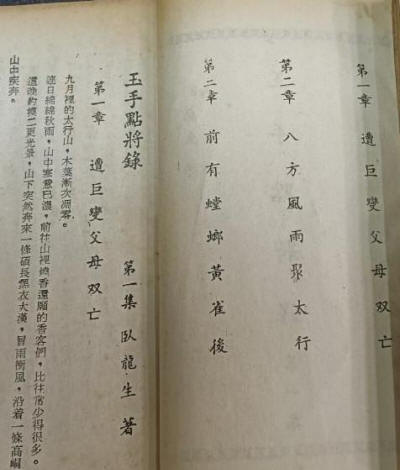 第一章　遭巨變父母双亡
第二章　八方風雨聚太行
第三章　前有螳螂黃雀後
玉手點將錄　第一集　臥龍生　著
第一章　遭巨變父母双亡
九月裡的太行山，木葉漸次凋零。
連日綿綿秋雨，山中寒意已濃，前往山裡燒香還願的香客們，比往常少得很多。
這晚約摸二更光景，山下突然奔來一條碩長黑衣大漢，冒雨衝風，沿着一條高峒
山中疾奔。